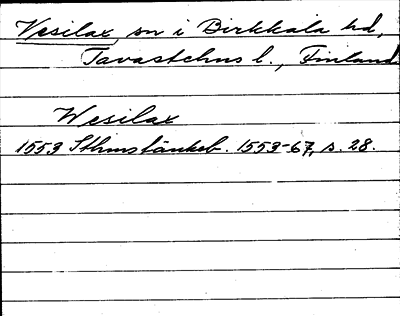 Vesilax, sn i Birkkala hd,
Tavastehus l., Finland
Wesilax
1553 Sthmstänkeb. 1553-67, s. 28.